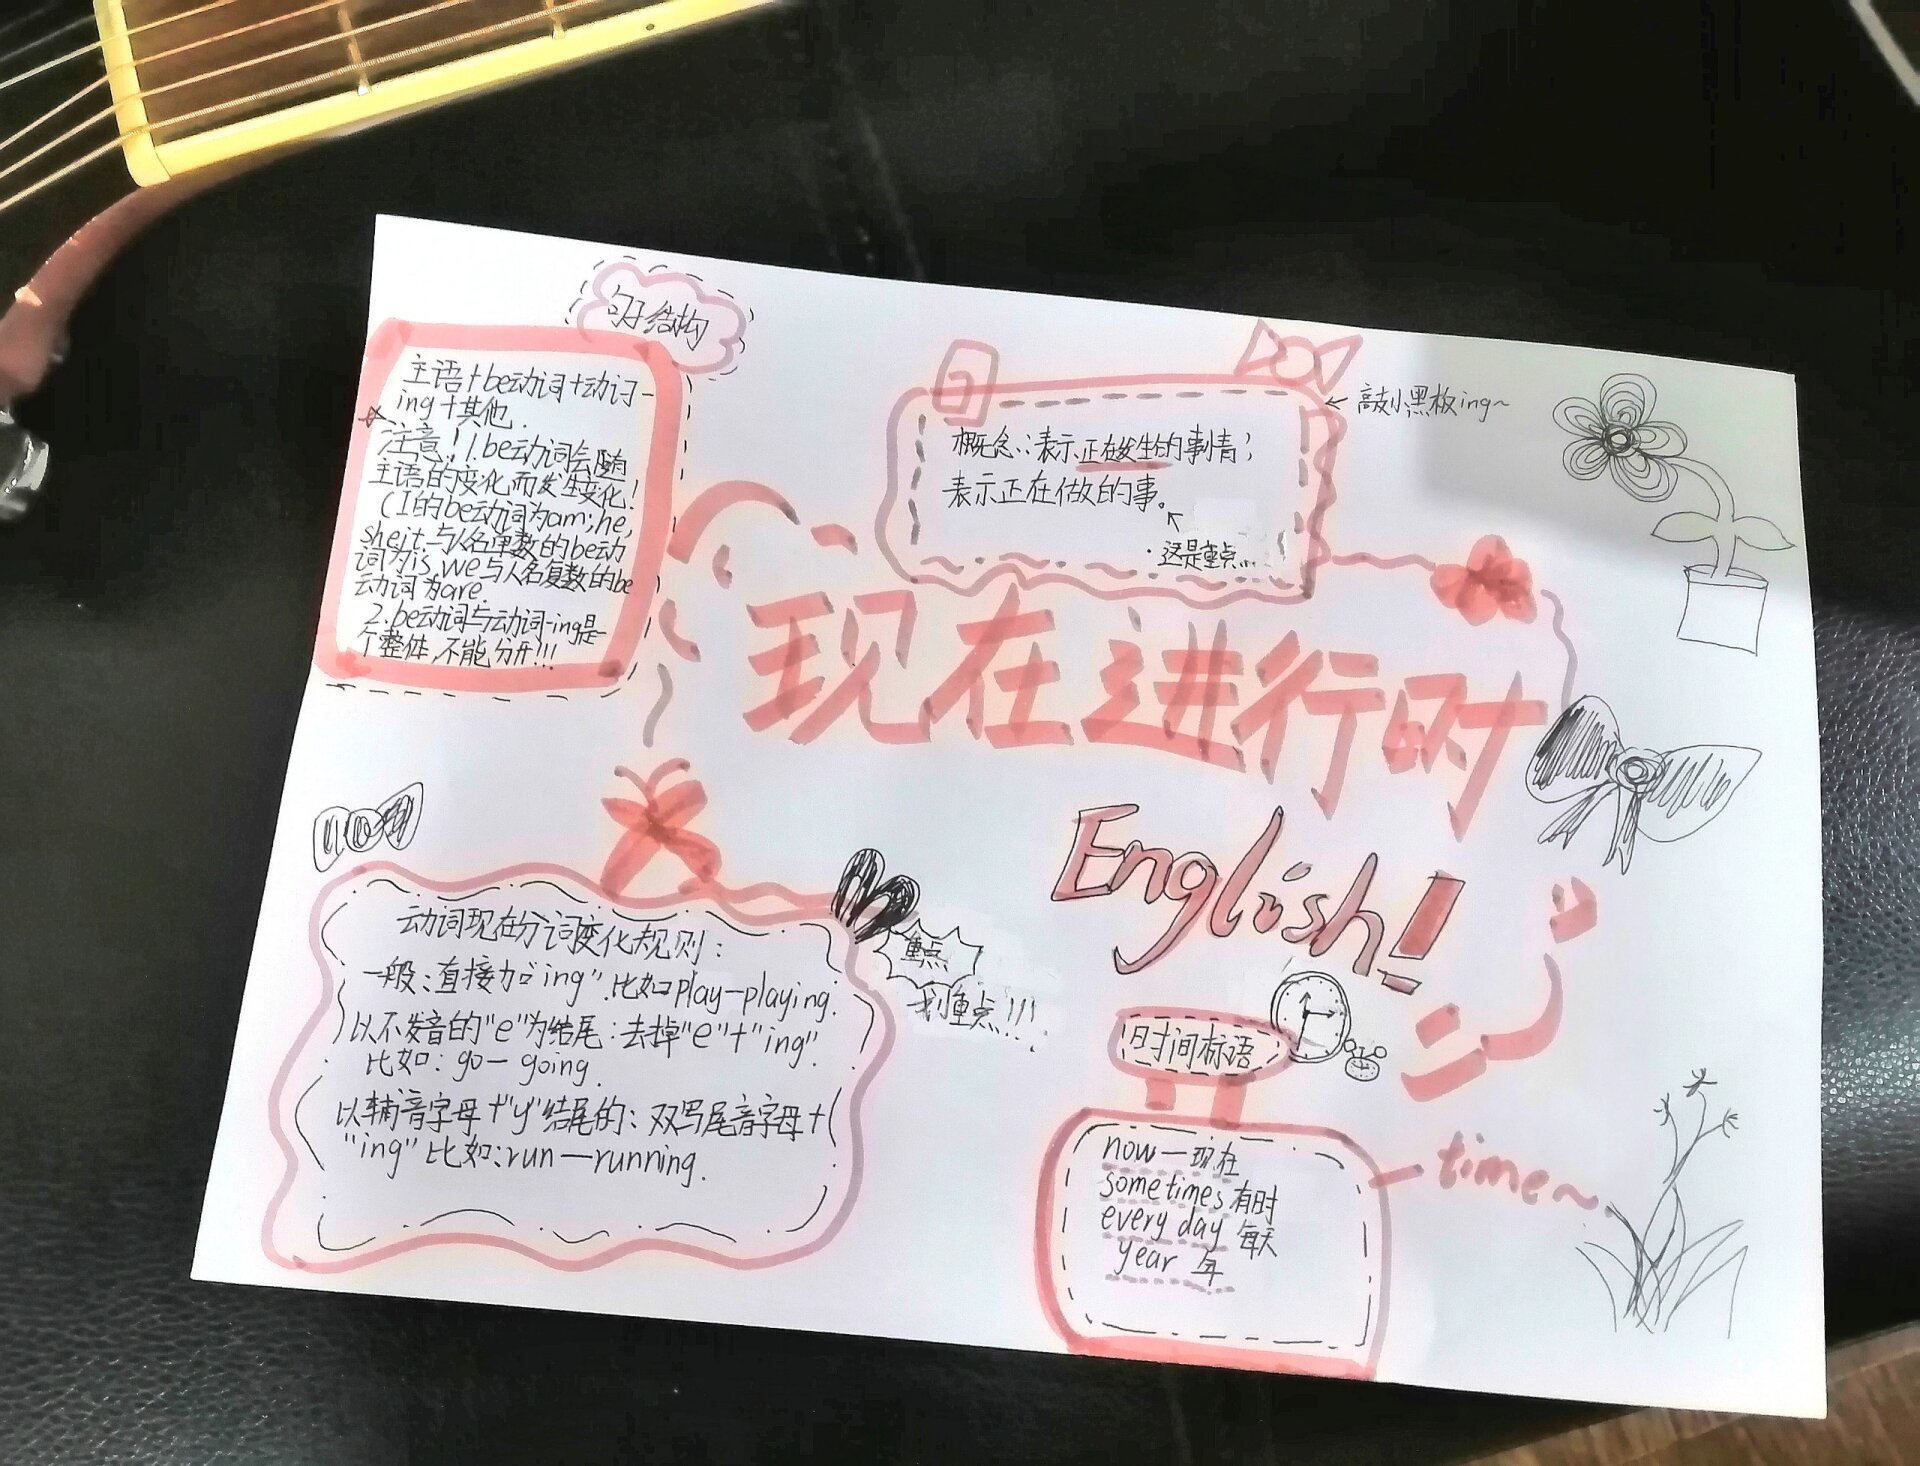 句子结构
主语+be动词+动词-
ing+其他.
注意!1.be动词会随
主语的变化而发生变化!
(I的be动词为am;he,
she,it与人名单数的be动
词为is,we与人名复数的be
动词为are.
2.be动词与动词-ing是一
个整体,不能分开!!!
概念:表示正在发生的事情;
表示正在做的事。
·这是重点...
←敲小黑板ing~
现在进行时
English!
动词现在分词变化规则:
一般:直接加"ing".比如play—playing.
以不发音的"e"为结尾:去掉"e"+"ing"
比如:go—going.
以辅音字母+"y"结尾的:双写尾音字母+
"ing"比如:run—running.
重点
划重点!!!
时间标语
now—现在
sometimes有时
every day 每天
year 年
time~